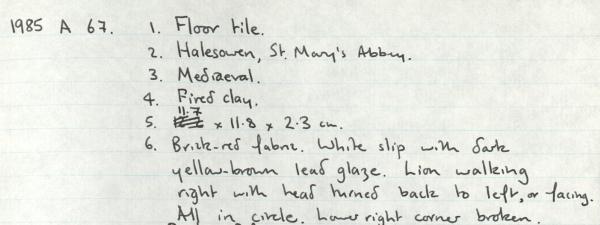 1985 A 67. 1. Floor tile.
2. Halesowen, St. Mary's Abbey.
3. Mediaeval.
4. Fired clay.
5. 11.7 x 11.8 x 2.3 cm.
6. Brick-red fabric. White slip with dark
yellow-brown lead glaze. Lion walking
right with head turned back to left, or facing.
All in circle. Lower right corner broken.